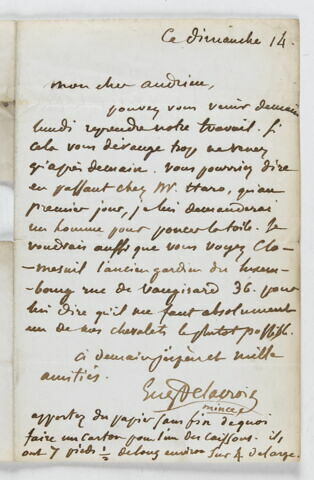 Ce dimanche 14.
mon cher andrieu,
pouvez vous venir demain
lundi reprendre notre travail. Si
cela vous dérange trop ne venez
qu'après demain. vous pourriez dire
en passant chez Mr. Haro, qu'au
premier jour, je lui demanderai
un homme pour poncer la toile. Je
voudrais aussi que vous voyez Clo-
-mesnil l'ancien gardien du Luxem-
-bourg rue de vaugirard 36. pour
lui dire qu'il me faut absolument
un de nos chevalets le plutot possible.
à demain j'espère et mille
amitiés.
Eug Delacroix
apportez du papier sans fin de quoi
faire un carton pour l'un des caissons. ils
ont 7 pieds ½ de long environ sur 4 de large.